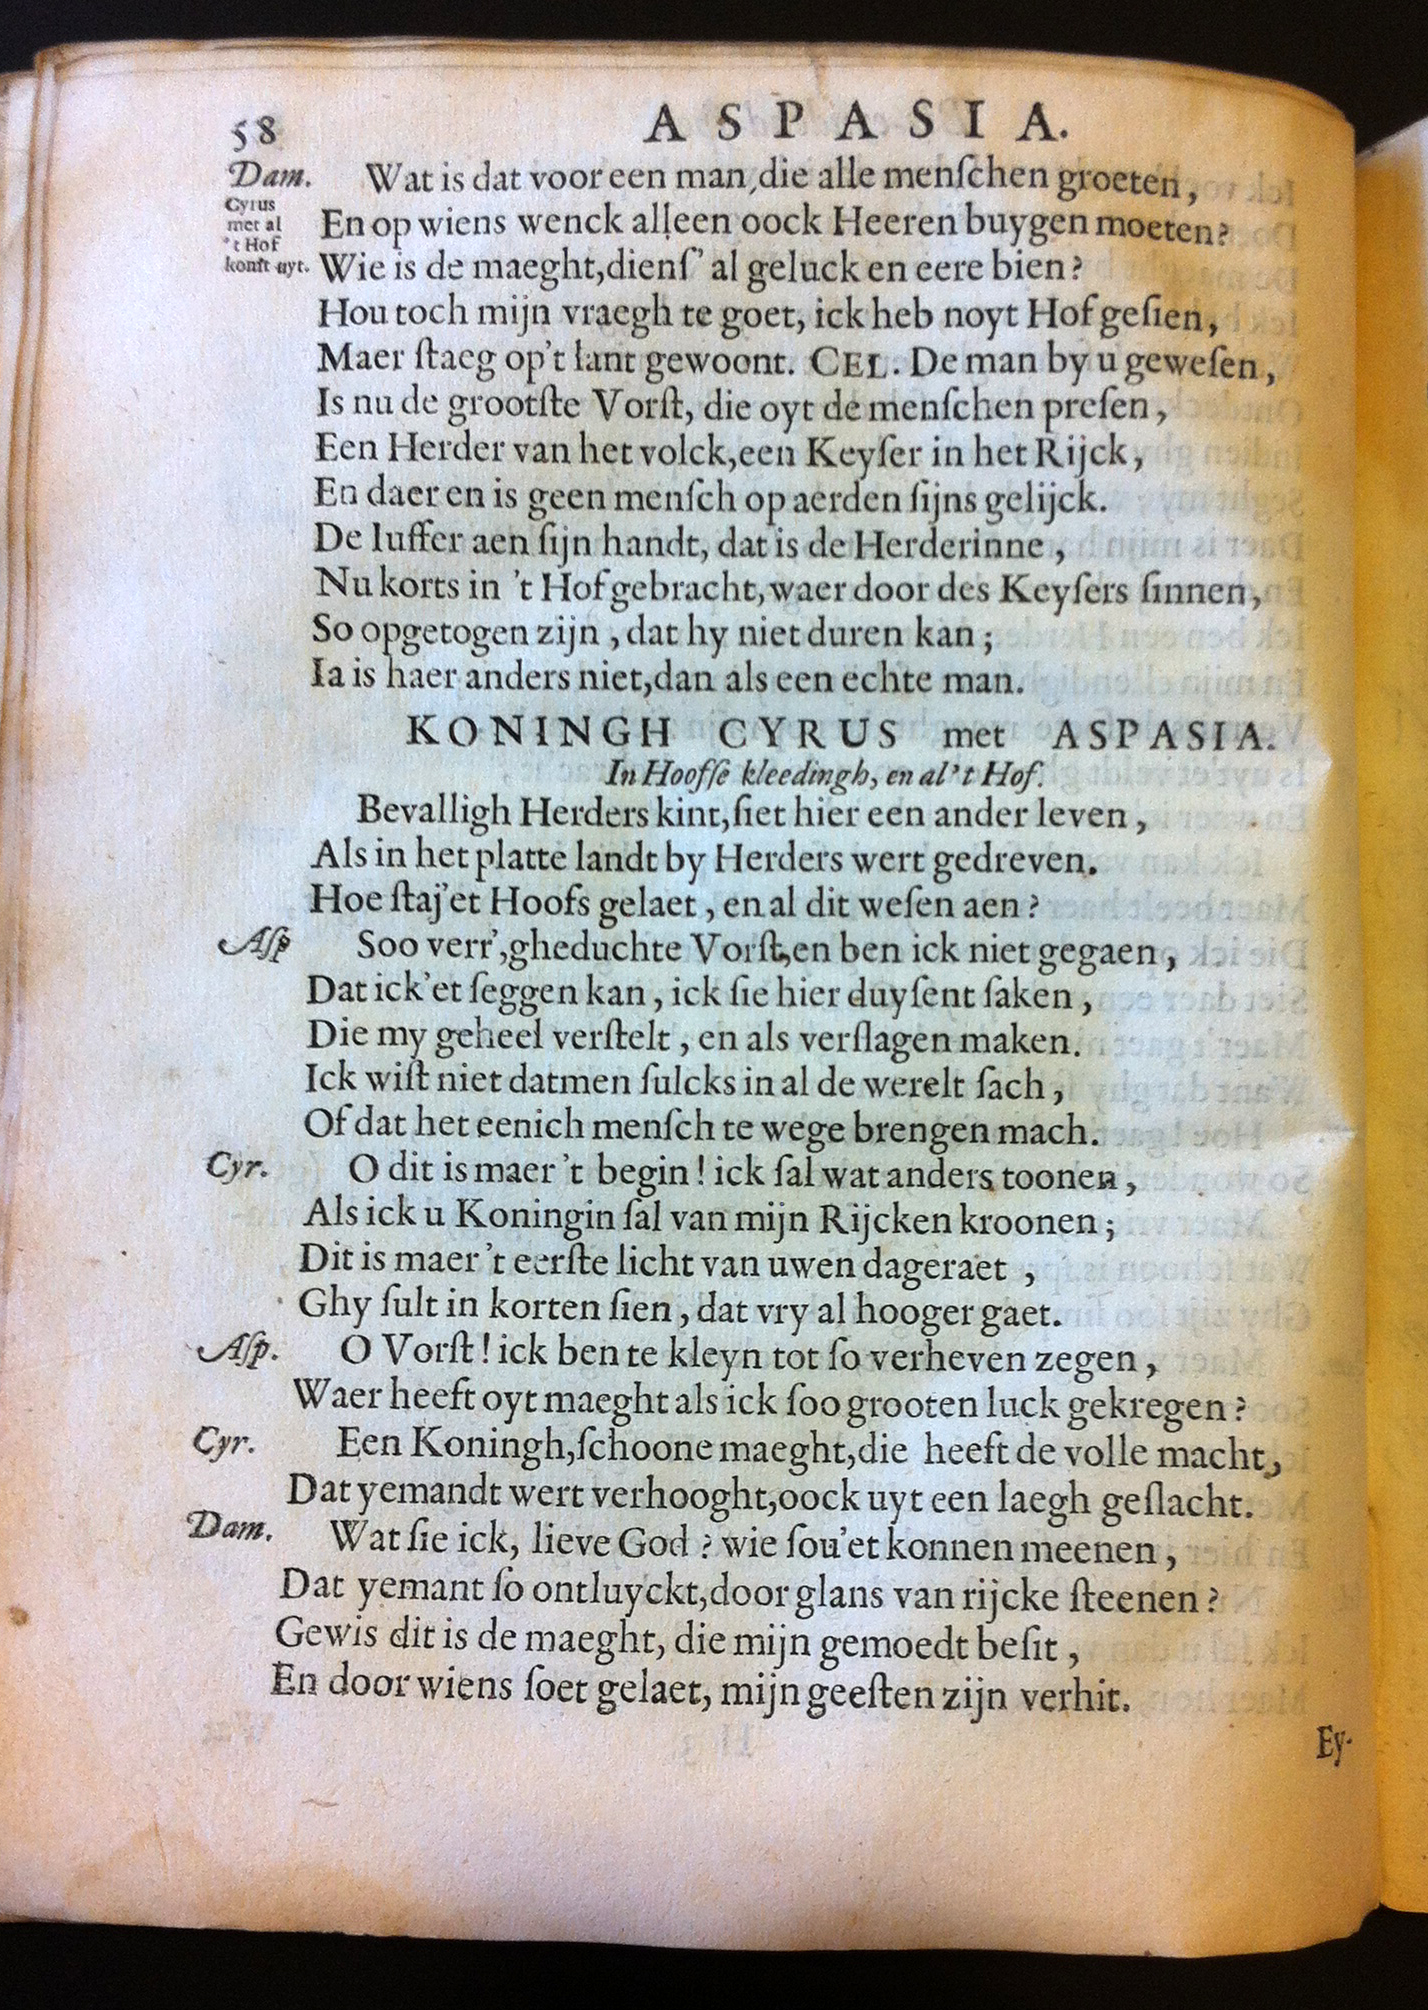 58 ASPASIA.
Dam. Wat is dat voor een man, die alle menſchen groeten,
Cyrus
met al
't Hof
komt uyt.
En op wiens wenck alleen oock Heeren buygen moeten?
Wie is de maeght, dienſ' al geluck en eere bien?
Hou toch mijn vraegh te goet, ick heb noyt Hof geſien,
Maer ſtaeg op't lant gewoont. CEL. De man by u geweſen,
Is nu de grootſte Vorſt, die oyt de menſchen preſen,
Een Herder van het volck, een Keyſer in het Rijck,
En daer en is geen menſch op aerden ſijns gelijck.
De Iuffer aen ſijn handt, dat is de Herderinne,
Nu korts in 't Hof gebracht, waer door des Keyſers ſinnen,
So opgetogen zijn, dat hy niet duren kan;
Ia is haer anders niet, dan als een echte man.
KONINGH CYRUS met ASPASIA.
In Hooffe kleedingh, en al't Hof.
Bevalligh Herders kint, ſiet hier een ander leven,
Als in het platte landt by Herders wert gedreven.
Hoe ſtaj'et Hoofs gelaet, en al dit weſen aen?
Aſp Soo verr', gheduchte Vorſt, en ben ick niet gegaen,
Dat ick'et ſeggen kan, ick ſie hier duyſent ſaken,
Die my geheel verſtelt, en als verſlagen maken.
Ick wiſt niet datmen ſulcks in al de werelt ſach,
Of dat het eenich menſch te wege brengen mach.
Cyr. O dit is maer 't begin! ick ſal wat anders toonen,
Als ick u Koningin ſal van mijn Rijcken kroonen;
Dit is maer 't eerſte licht van uwen dageraet,
Ghy ſult in korten ſien, dat vry al hooger gaet.
Aſp. O Vorſt! ick ben te kleyn tot ſo verheven zegen,
Waer heeft oyt maeght als ick ſoo grooten luck gekregen?
Cyr. Een Koningh, ſchoone maeght, die heeft de volle macht,
Dat yemandt wert verhooght, oock uyt een laegh geſlacht.
Dam. Wat ſie ick, lieve God? wie ſou'et konnen meenen,
Dat yemant ſo ontluyckt, door glans van rijcke ſteenen?
Gewis dit is de maeght, die mijn gemoedt beſit,
En door wiens ſoet gelaet, mijn geeſten zijn verhit.
Ey-